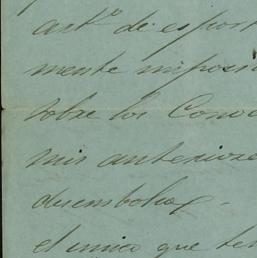 art.º de esport
mente imposi
sobre los Cono
mis anteriore
desembolso.
el unico que ten